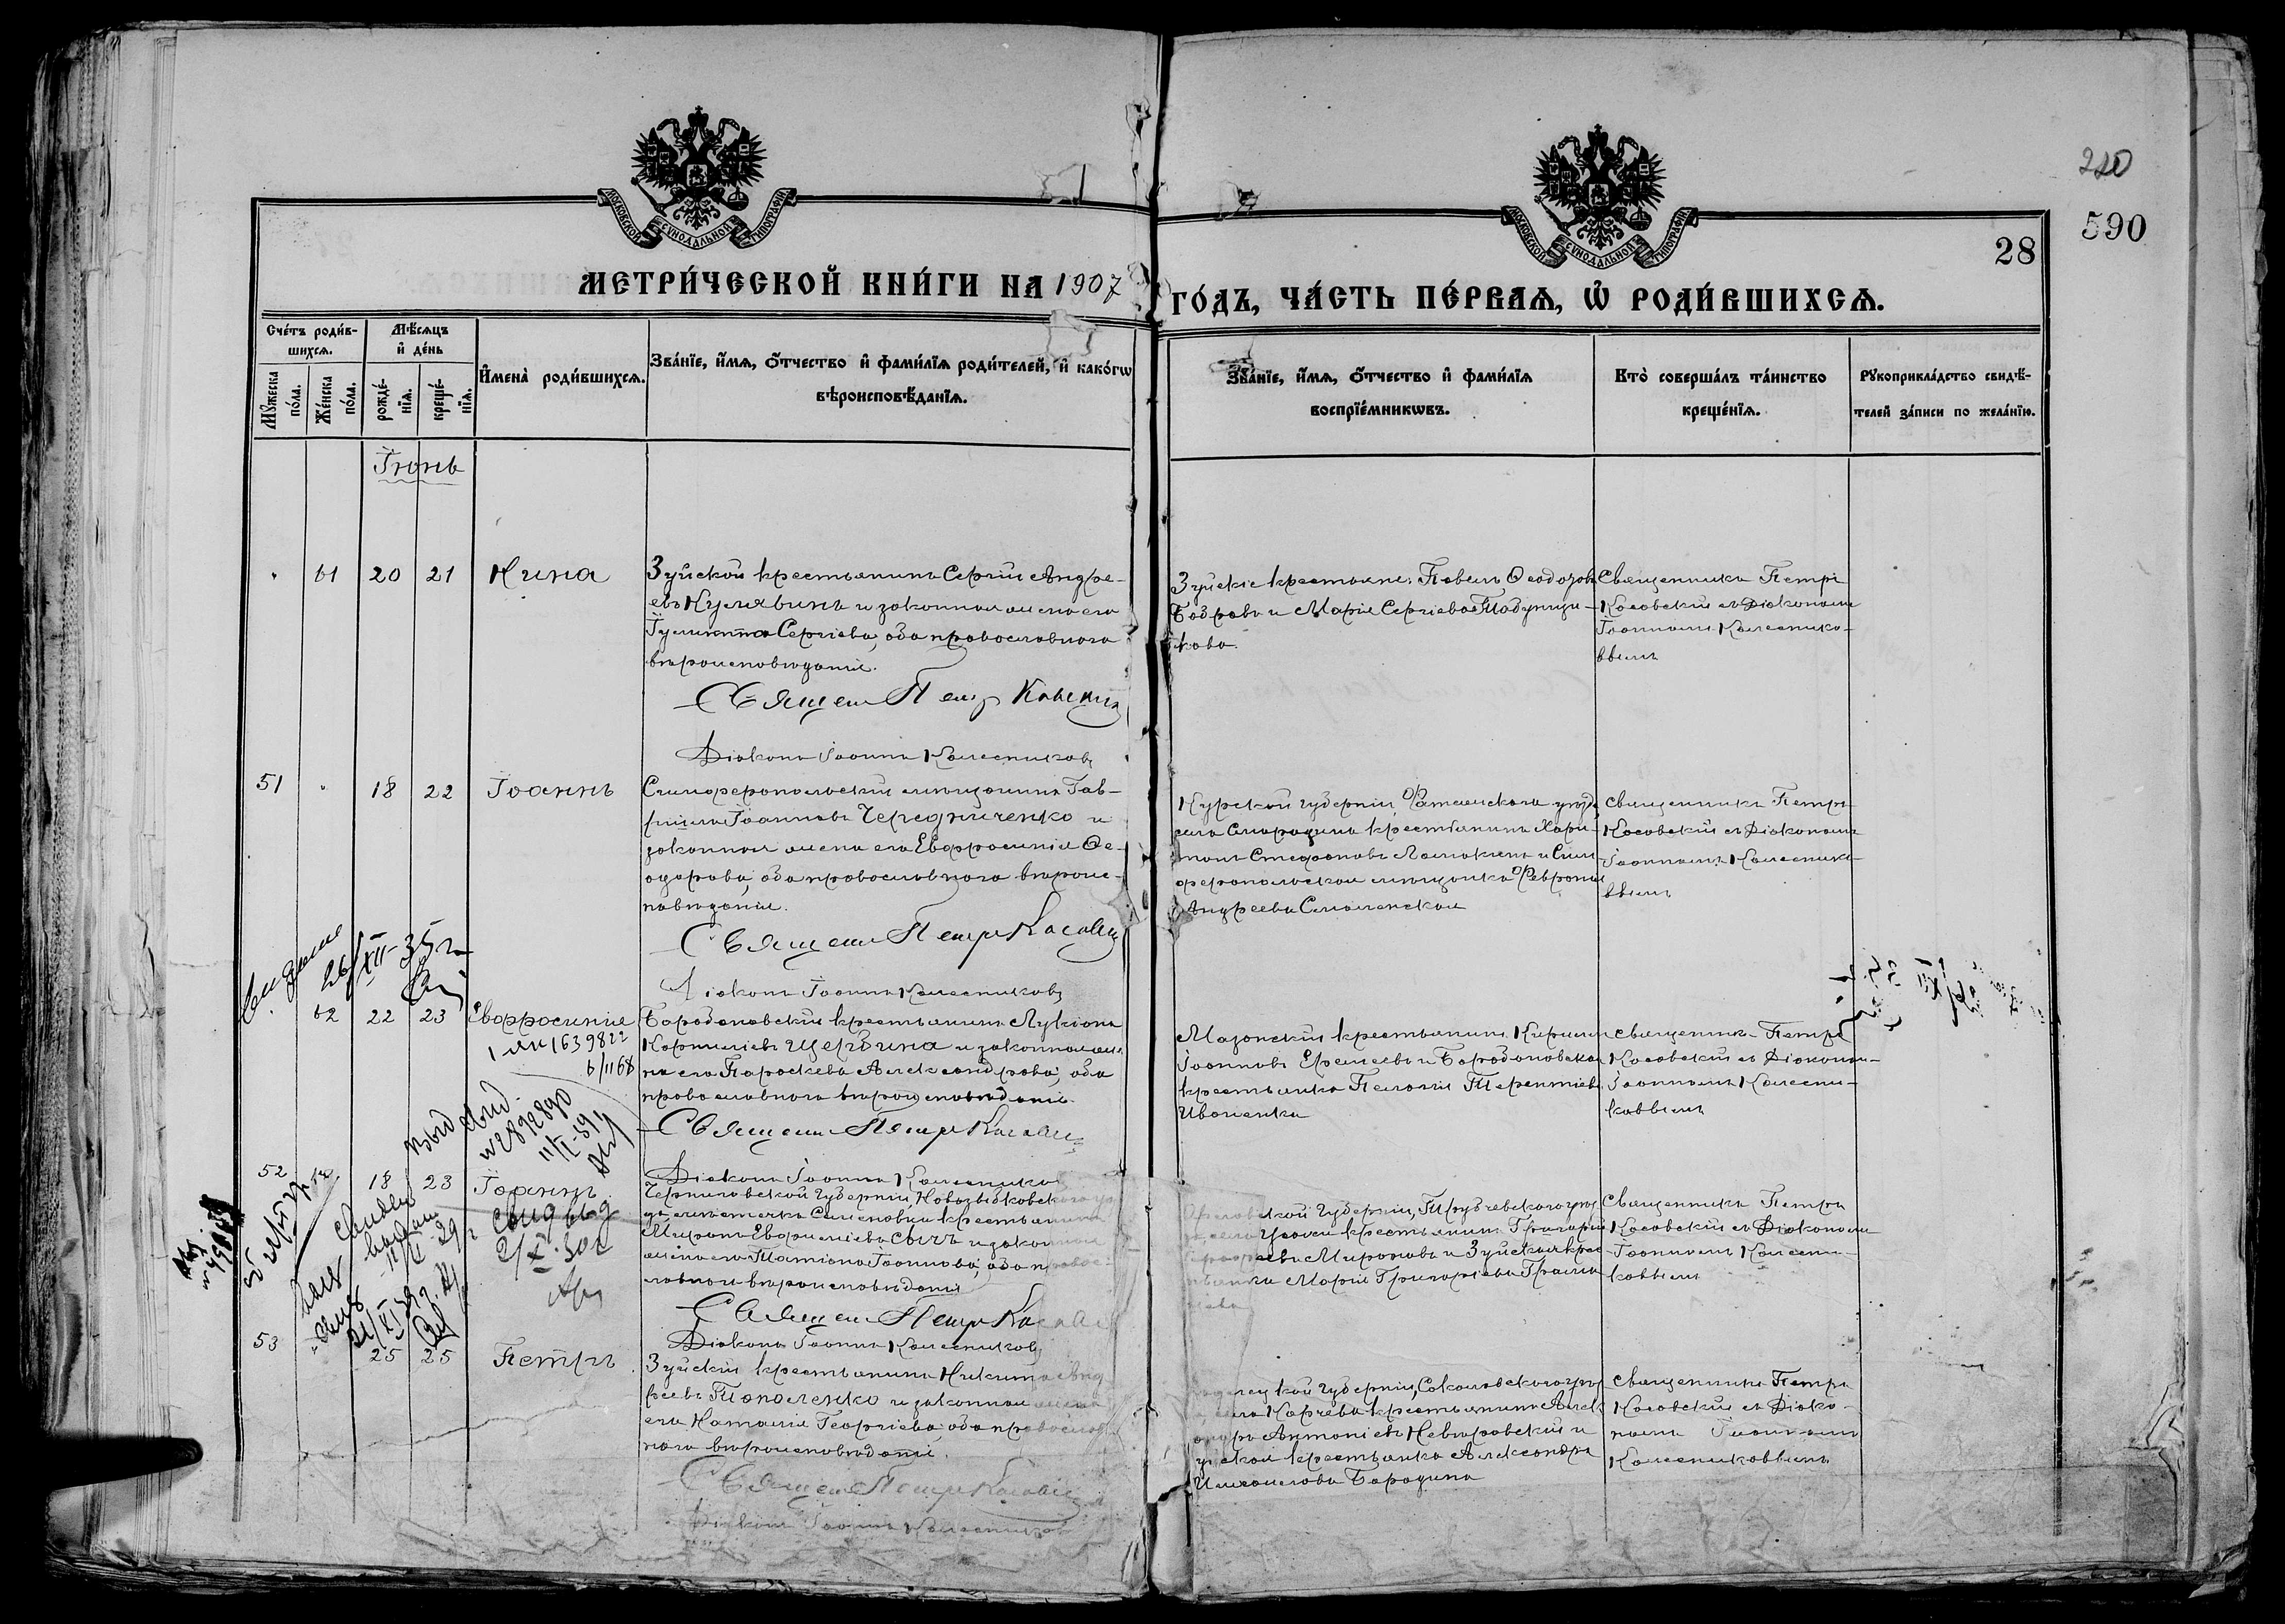 220
590
28
МОСКОВСКОЙ СѴНОДАЛЬНОЙ ТИПОГРАФІИ
МОСКОВСКОЙ СѴНОДАЛЬНОЙ ТИПОГРАФІИ
МЕТРИ́ЧЕСКОЙ КНИ́ГИ НА 1907
ГО́ДЪ, ЧА́СТЬ ПЕ́РВАѦ, Ѡ҆ РОДИ́ВШИХСѦ.
Сче́тъ роди́в-
шихсѧ.
Мѣ́сѧцъ
и҆ де́нь
Мꙋ́жеска
по́ла.
Же́нска
по́ла.
рожде́-
нїѧ.
креще́-
нїѧ.
И҆мена̀ роди́вшихсѧ.
Зва́нїе, и҆́мѧ, ѻ҆́тчество и҆ фами́лїѧ роди́телей, и҆ како́гѡ
вѣроисповѣ́данїѧ.
Зва́нїе, и҆́мѧ, ѻ҆́тчество и҆ фами́лїѧ
воспрїе́мникѡвъ.
Кто̀ соверша́лъ та́инство
креще́нїѧ.
Рꙋкоприкла́дство свидѣ́-
телей за́писи по жела́нїю.
Іюнь
61 20 21 Нина
Зуйской крестьянинъ Сергій Андре-
евъ Кулявинъ и законная жена его
Іулитта Сергіева, оба православнаго
вѣроисповѣданія.
Священ Петръ Косовскій
Діаконъ Іоаннъ Колесниковъ
Зуйскіе крестьяне: Павелъ Ѳеодоровъ
Бобровъ и Марія Сергіева Табунщи-
кова.
Священникъ Петръ
Косовскій съ Діакономъ
Іоанномъ Колеснико-
вымъ
51 18 22 Іоаннъ
Симферопольскій мѣщанинъ Гав-
ріилъ Іоанновъ Чередниченко и
законная жена его Евфросинія Ѳе-
одорова, оба православнаго вѣроис-
повѣданія.
Священ Петръ Косовскій
Діаконъ Іоаннъ Колесниковъ
Курской губерніи, Фатежскаго уѣзда
села Смородина крестьянинъ Хари-
тонъ Стефановъ Ломакинъ и Сим-
феропольская мѣщанка Феврония
Андреева Смоленская
Священникъ Петръ
Косовскій съ Діакономъ
Іоанномъ Колеснико-
вымъ
26/XII-35 г
62 22 23 Евфросинія
1639822
Барабановскій крестьянинъ Лукіанъ
Корниліевъ Щербина и законная же-
на его Параскева Александрова, оба
православнаго вѣроисповѣданія.
Священ Петръ Косовскій
Діаконъ Іоаннъ Колесниковъ
Мазанскій крестьянинъ Кириллъ
Іоанновъ Еремеевъ и Барабановская
крестьянка Пелагія Терентіева
Ивоненка
Священникъ Петръ
Косовскій съ Діакономъ
Іоанномъ Колесни-
ковымъ
52 18 23 Іоаннъ
свид выд
2/X-30г
Черниговской губерніи, Новозыбковскаго уѣз
да мѣстечка Семеновки крестьянинъ
Миронъ Евфиміевъ Сычъ и законная
жена его Татіана Іоаннова, оба правос-
лавнаго вѣроисповѣданія
Священ Петръ Косовскій
Діаконъ Іоаннъ Колесниковъ
Орловской губерніи, Трубчевскаго уѣз
да, села Усохи крестьянинъ Григорій
Мироновъ и Зуйская крес-
тьянка Марія Григоріева
Священникъ Петръ
Косовскій съ Діакономъ
Іоанномъ Колесни-
ковымъ
53 25 25 Петръ
Зуйскій крестьянинъ Никита Анд-
реевъ Тополенко и законная жена
его Наталія Георгіева, оба православ-
наго вѣроисповѣданія.
Священ Петръ Косовскій
Діаконъ Іоаннъ Колесниковъ
губерніи, Соколовскаго уѣз
села Карчева крестьянинъ Алек-
сандръ Антоніевъ Невяровскій и
Зуйская крестьянка Александра
Михаилова Бородина
Священникъ Петръ
Косовскій съ Діако-
номъ Іоанномъ
Колесниковымъ